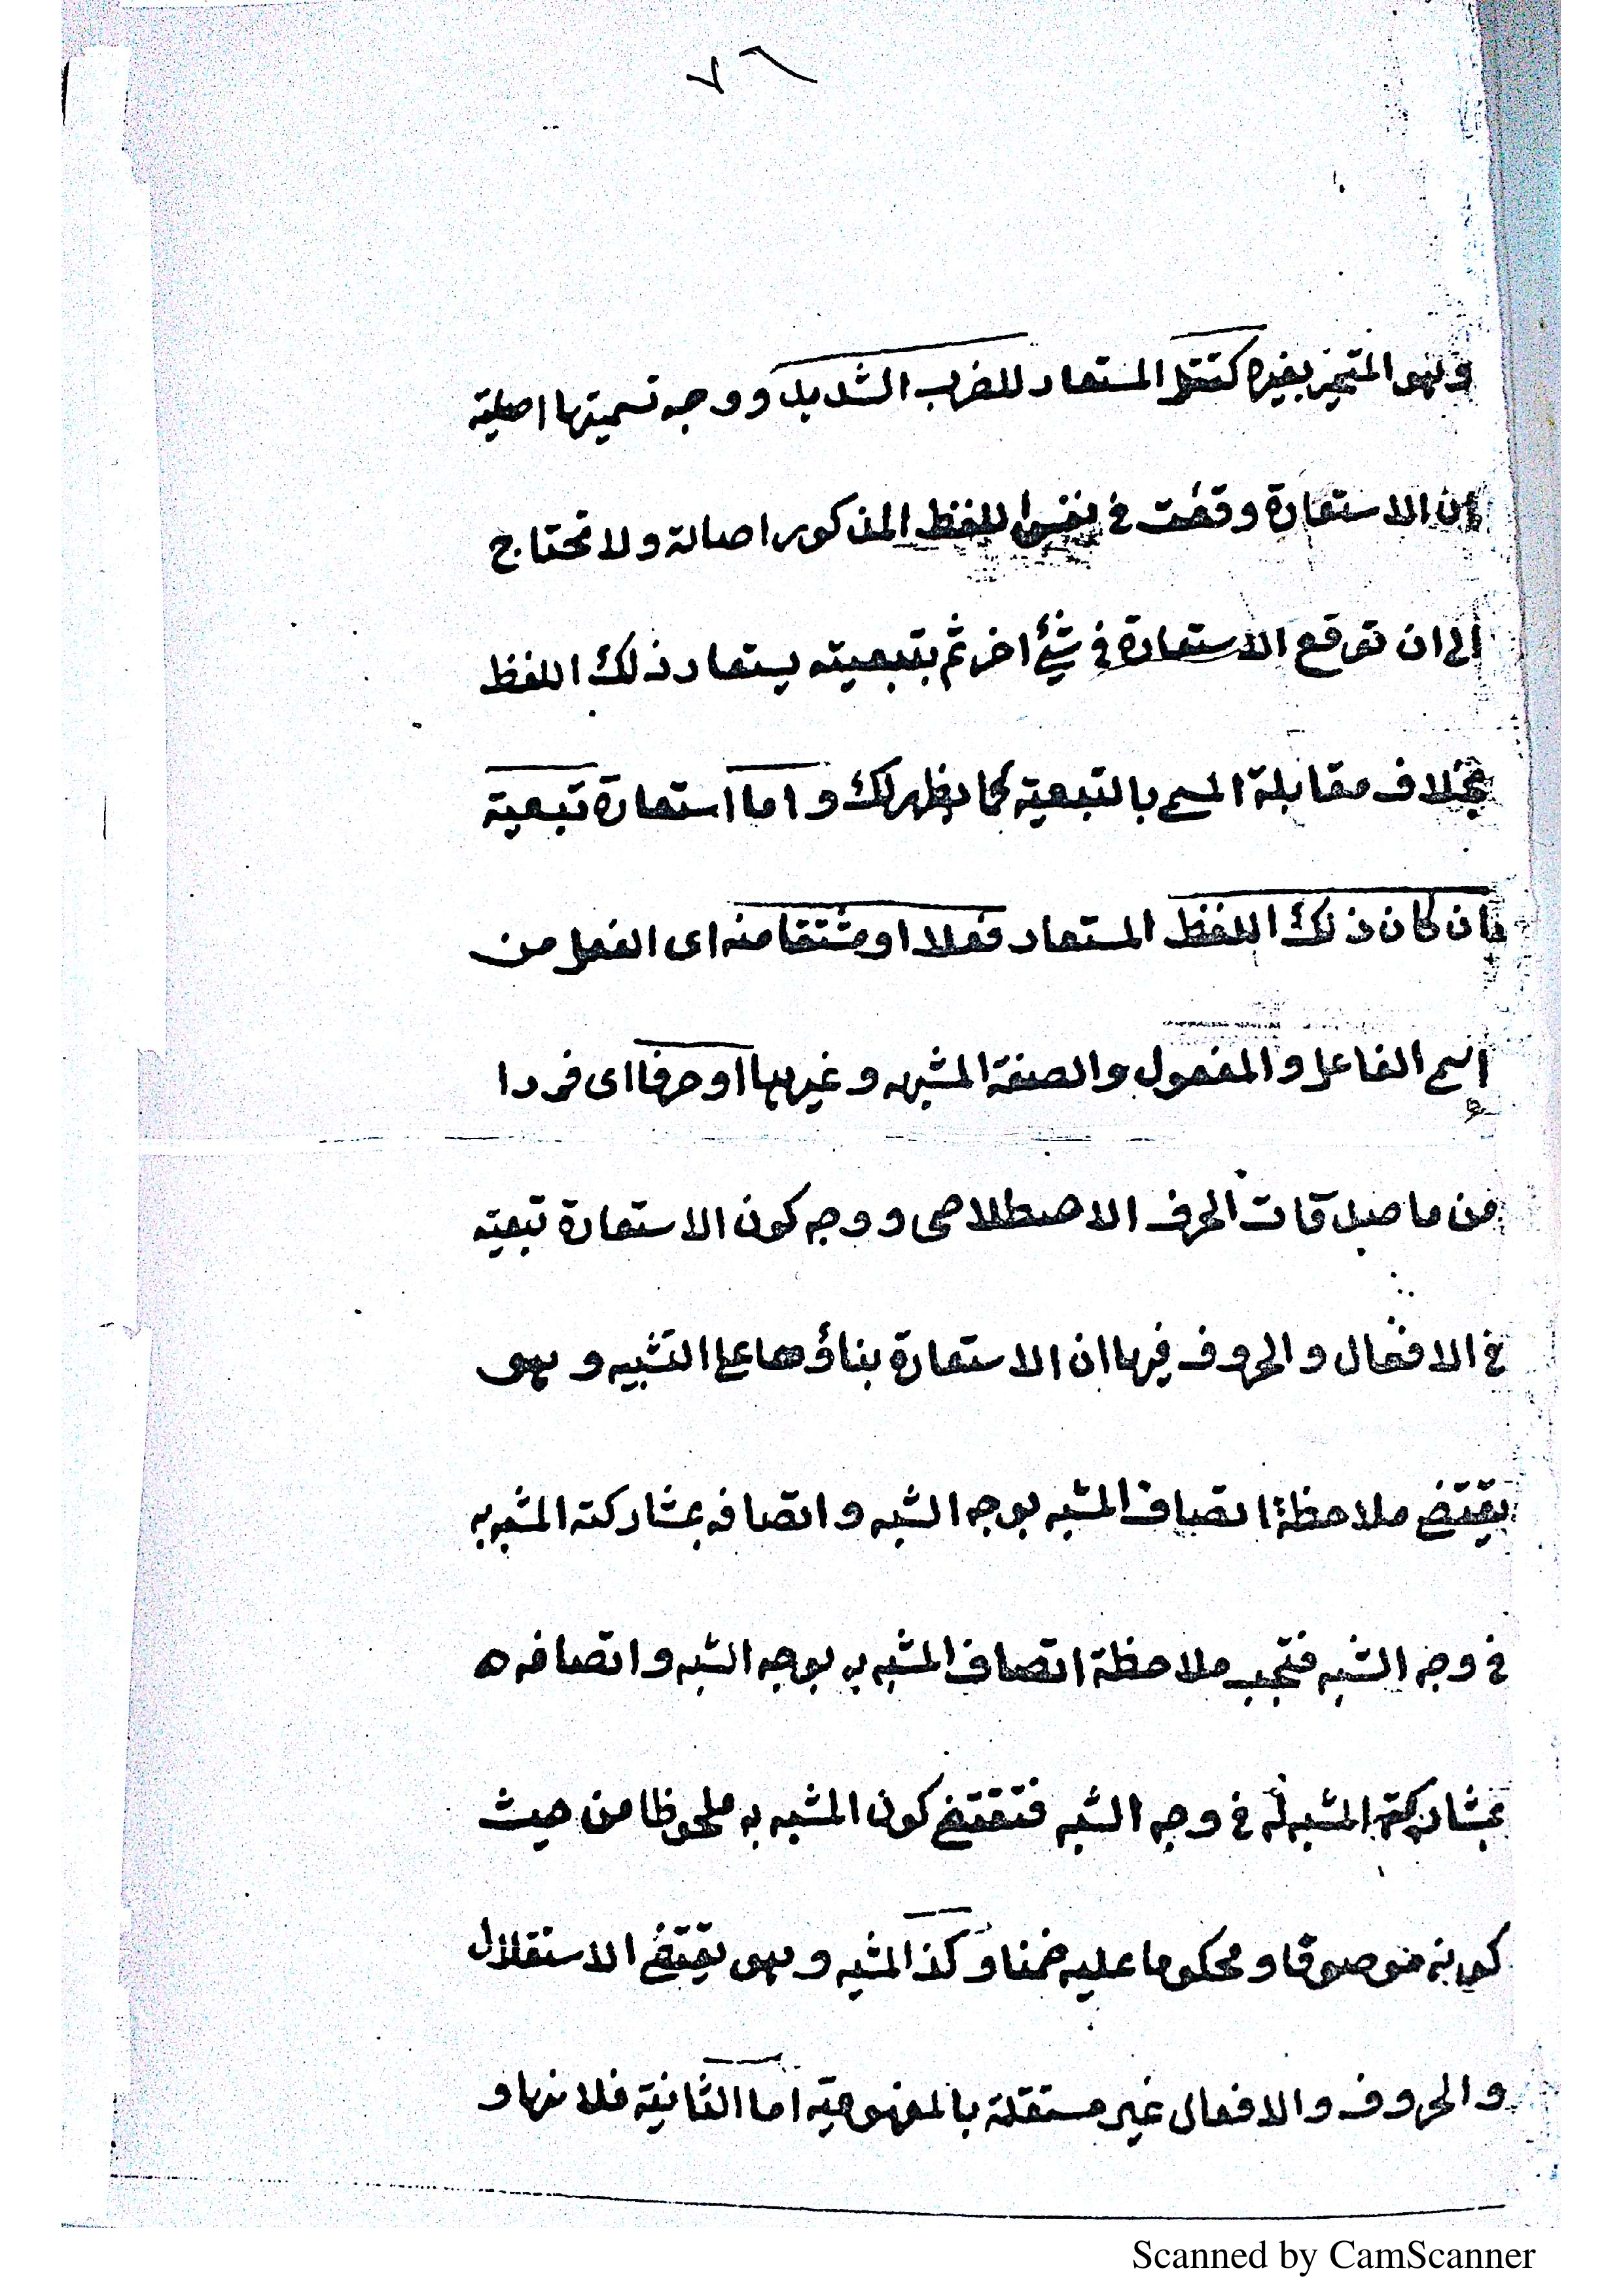 ٧٦
وهو المتميز بغيره كقتل المستعار للضرب الشديد ووجه تسميتها اصلية
ان الاستعارة وقعت فى نفس اللفظ المذكور اصالة ولا تحتاج
الى ان توقع الاستعارة فى شئ اخر ثم بتبعيته يستعار ذلك اللفظ
بخلاف مقابلة المسمى بالتبعية كما يظهر لك واما استعارة تبعية
ان كان ذلك اللفظ المستعار فعلا او مشتقا منه اى الفعل من
اسم الفاعل والمفعول والصفة المشبهه وغيرهما او حرفا اى فردا
من ماصدقات الحرف الاصطلاحى ووجه كون الاستعارة تبعيته
فى الافعال والحروف فيها ان الاستعارة بناؤها على التشبيه وهى
يقتضى ملاحظة اتصاف المشبه بوجه الشبه واتصافه بمشاركته المشبه به
فى وجه الشبه فتجب ملاحظة اتصاف المشبه به بوجه الشبه واتصافه ه
بمشاركته المشبه له فى وجه الشبه فتقتضى كون المشبه به ملحوظا من حيث
كونه موصوفا ومحكوما عليه ضمنا وكذ المشبه وهى تقتضى الاستقلال
والحروف والافعال غير مستقلة بالمفهومية اما الثانية فلانها و
Scanned by CamScanner